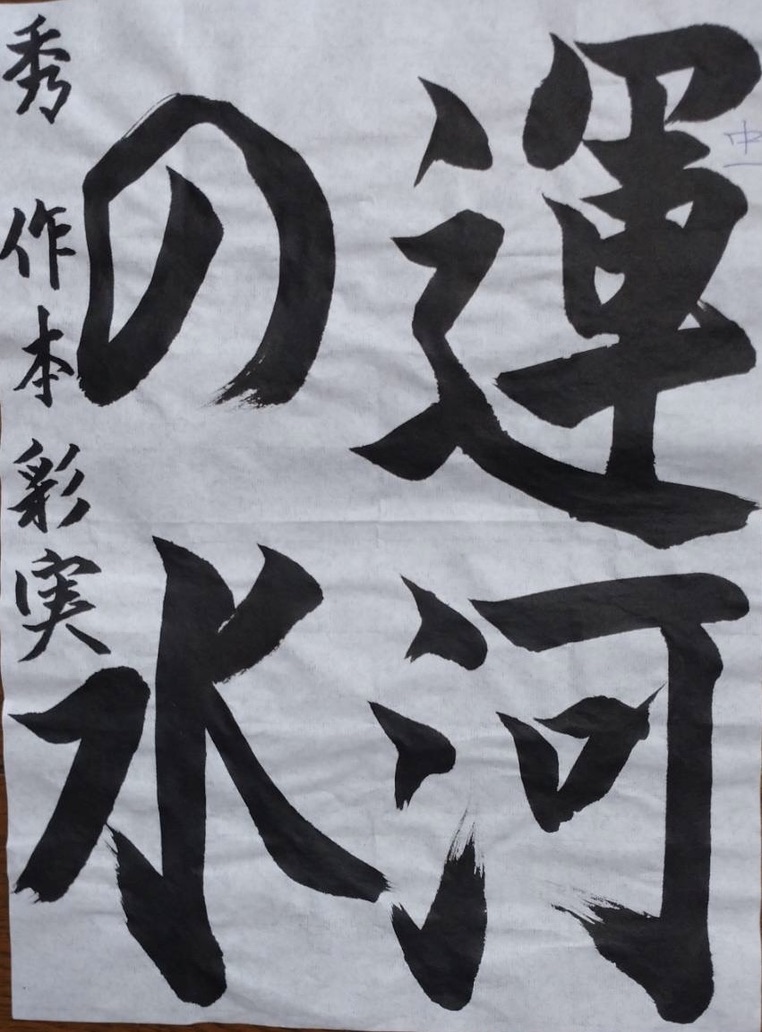 中一
運河
の水
秀 作本彩実